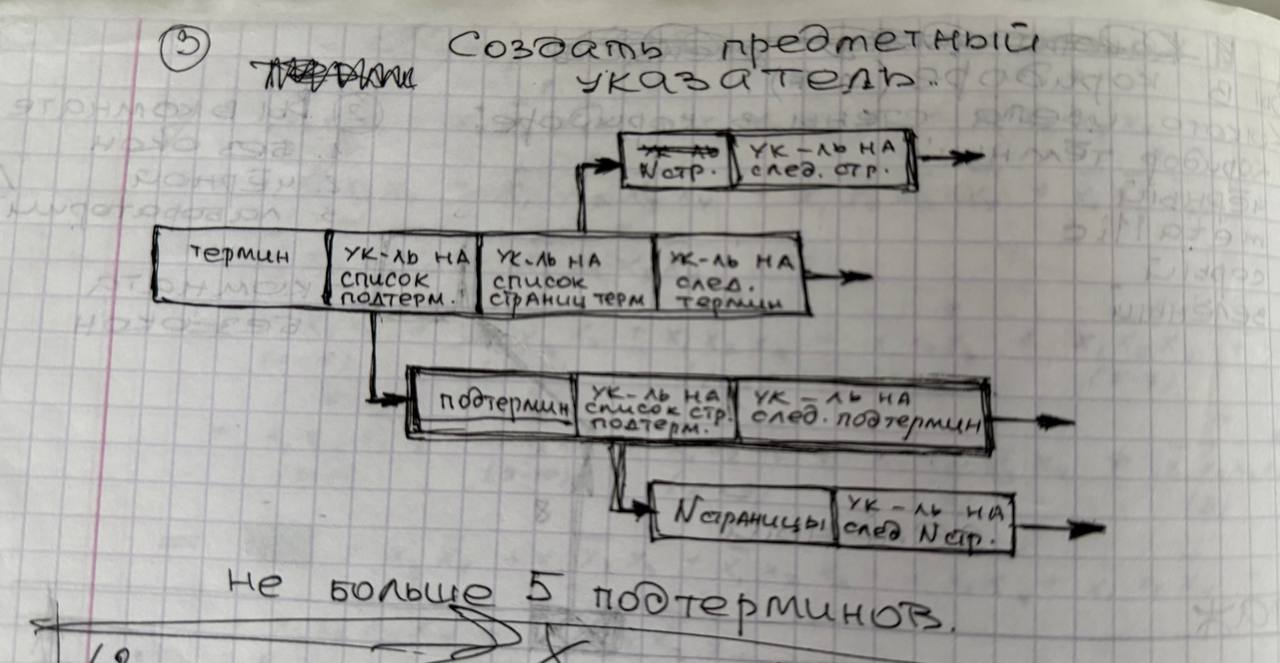 3
Создать предметный
указатель.
N стр.
ук-ль на
след. стр.
термин
ук-ль на
список
подтерм.
ук-ль на
список
страниц терм
ук-ль на
след.
термин
подтермин
ук-ль на
список стр.
подтерм.
ук-ль на
след. подтермин
N страницы
ук-ль на
след N стр.
не больше 5 подтерминов.